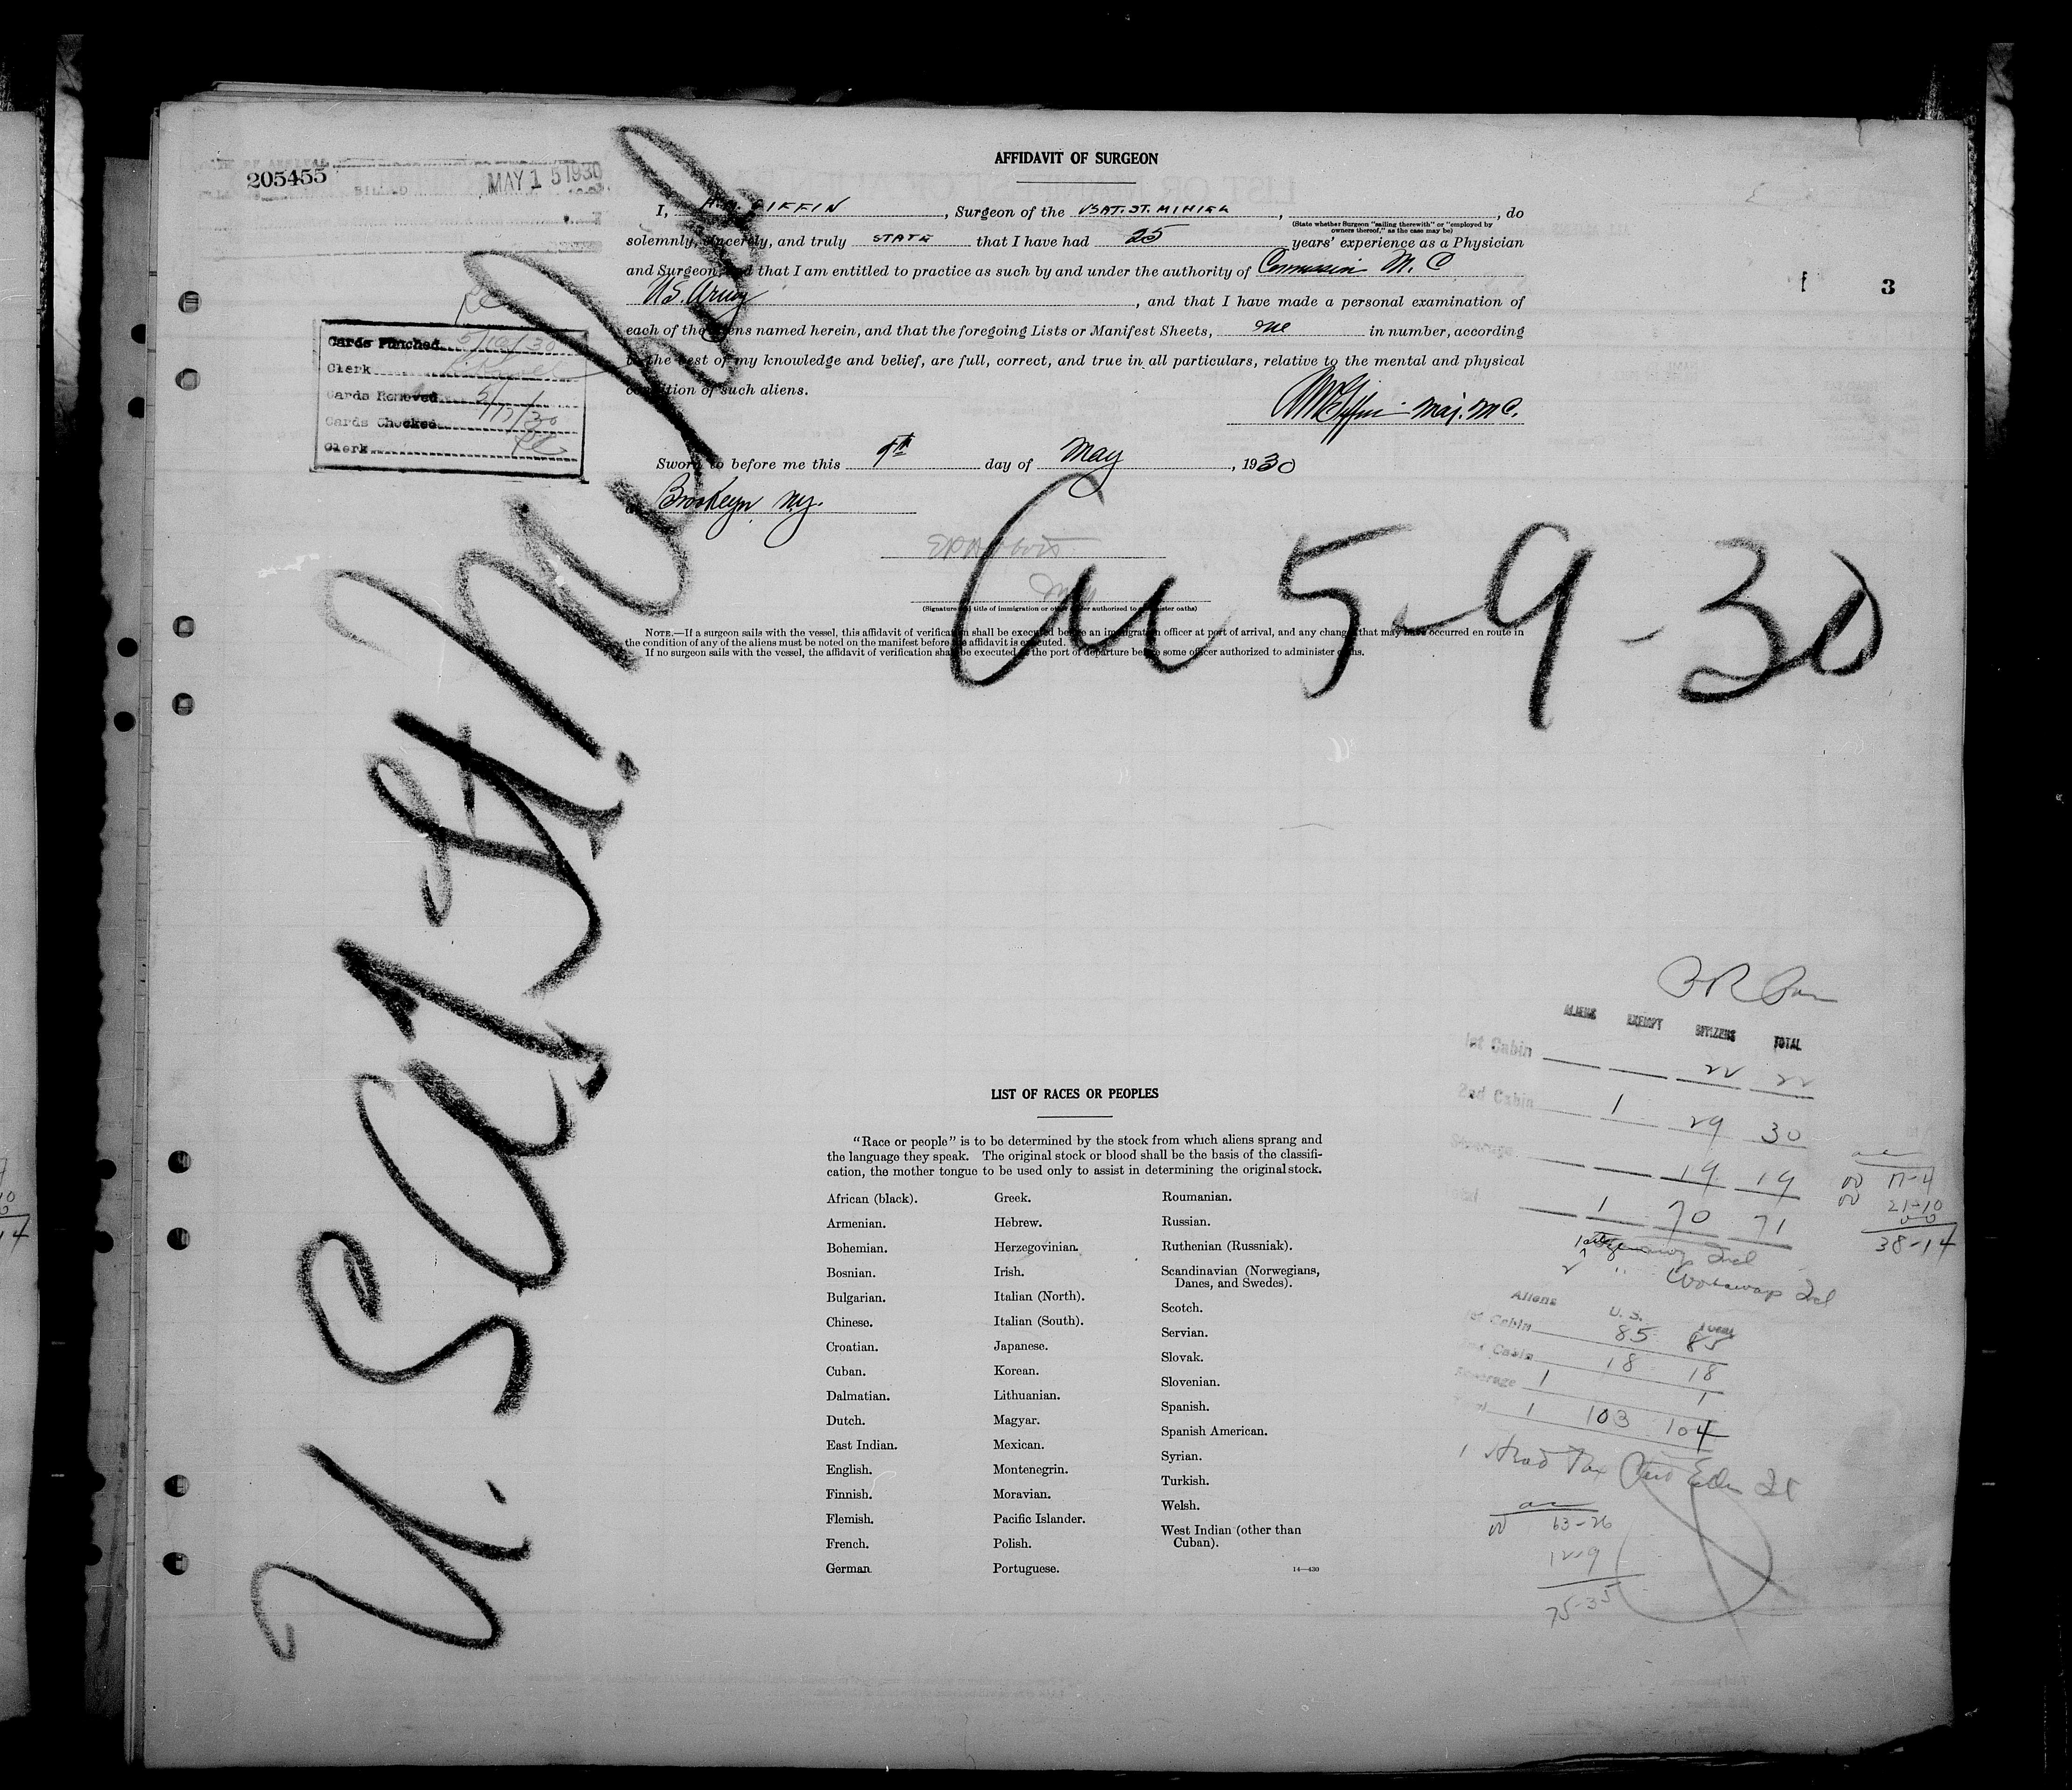 205455
MAY 15 1930
3
AFFIDAVIT OF SURGEON
I, GIFFIN, Surgeon of the USAT. ST. MIHIEL, , do
(State whether Surgeon "sailing therewith" or "employed by
owners thereof," as the case may be)
solemnly, sincerely, and truly STATE that I have had 25 years' experience as a Physician
and Surgeon, and that I am entitled to practice as such by and under the authority of Commission M. C
US. Army, and that I have made a personal examination of
each of the aliens named herein, and that the foregoing Lists or Manifest Sheets, one in number, according
to the best of my knowledge and belief, are full, correct, and true in all particulars, relative to the mental and physical
condition of such aliens.
Maj. M C.
Sworn to before me this 9th day of May, 1930
at Brooklyn NY.
(Signature and title of immigration or other officer authorized to administer oaths)
NOTE.—If a surgeon sails with the vessel, this affidavit of verification shall be executed before an immigration officer at port of arrival, and any change that may have occurred en route in
the condition of any of the aliens must be noted on the manifest before the affidavit is executed.
If no surgeon sails with the vessel, the affidavit of verification shall be executed at the port of departure before some officer authorized to administer oaths.
Cards Punched 5/16/30
Clerk
Cards Removed
Cards Checked 5/17/30
Clerk
U. S. A. T. St. Mihiel
Arr 5-9-30
LIST OF RACES OR PEOPLES
"Race or people" is to be determined by the stock from which aliens sprang and
the language they speak. The original stock or blood shall be the basis of the classifi-
cation, the mother tongue to be used only to assist in determining the original stock.
African (black).
Armenian.
Bohemian.
Bosnian.
Bulgarian.
Chinese.
Croatian.
Cuban.
Dalmatian.
Dutch.
East Indian.
English.
Finnish.
Flemish.
French.
German
Greek.
Hebrew.
Herzegovinian.
Irish.
Italian (North).
Italian (South).
Japanese.
Korean.
Lithuanian.
Magyar.
Mexican.
Montenegrin.
Moravian.
Pacific Islander.
Polish.
Portuguese.
Roumanian.
Russian.
Ruthenian (Russniak).
Scandinavian (Norwegians,
Danes, and Swedes).
Scotch.
Servian.
Slovak.
Slovenian.
Spanish.
Spanish American.
Syrian.
Turkish.
Welsh.
West Indian (other than
Cuban).
14—430
ALIENS EXEMPT CITIZENS TOTAL
1st Cabin 22 22
2nd Cabin 1 29 30
Steerage 19 19
Total 1 70 71
17-4
21-10
38-14
Aliens U. S. Total
1st Cabin 85 85
2nd Cabin 18 18
Steerage 1 1
Total 1 103 104
1 Head Tax
63-26
12-9
75-35